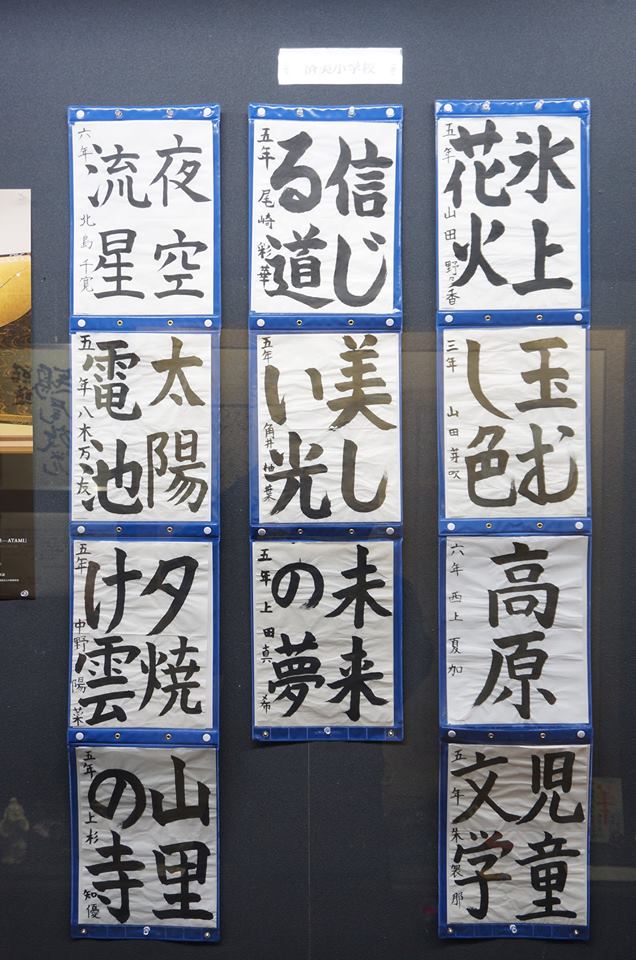 済美小学校
氷上
花火
五年 山田野々香
玉む
し色
三年 山田芽吹
高原
六年 西上夏加
児童
文学
五年 朱
信じ
る道
五年 尾崎彩華
美し
い光
五年 角井柚葉
未来
の夢
五年 上田真希
夜空
流星
六年 北島千寛
太陽
電池
五年 八木万友
夕焼
け雲
五年 中野陽菜
山里
の寺
五年 上杉知優
ATAMI